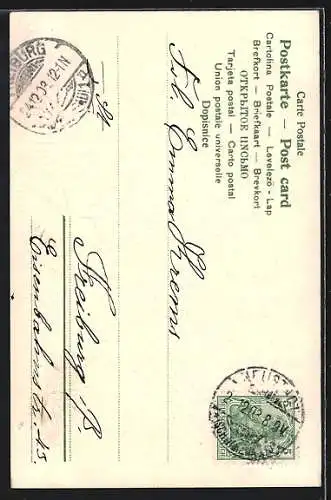 Carte Postale
Postkarte — Post card
Cartolina Postale — Levelező-Lap
Brefkort — Briefkaart — Brevkort
ОТКРЫТОЕ ПИСЬМО
Tarjeta postal — Carto postal
Union postale universelle
Dopisnice
Frl. Emma Krems
Freiburg B.
Eisenbahnstr. 45